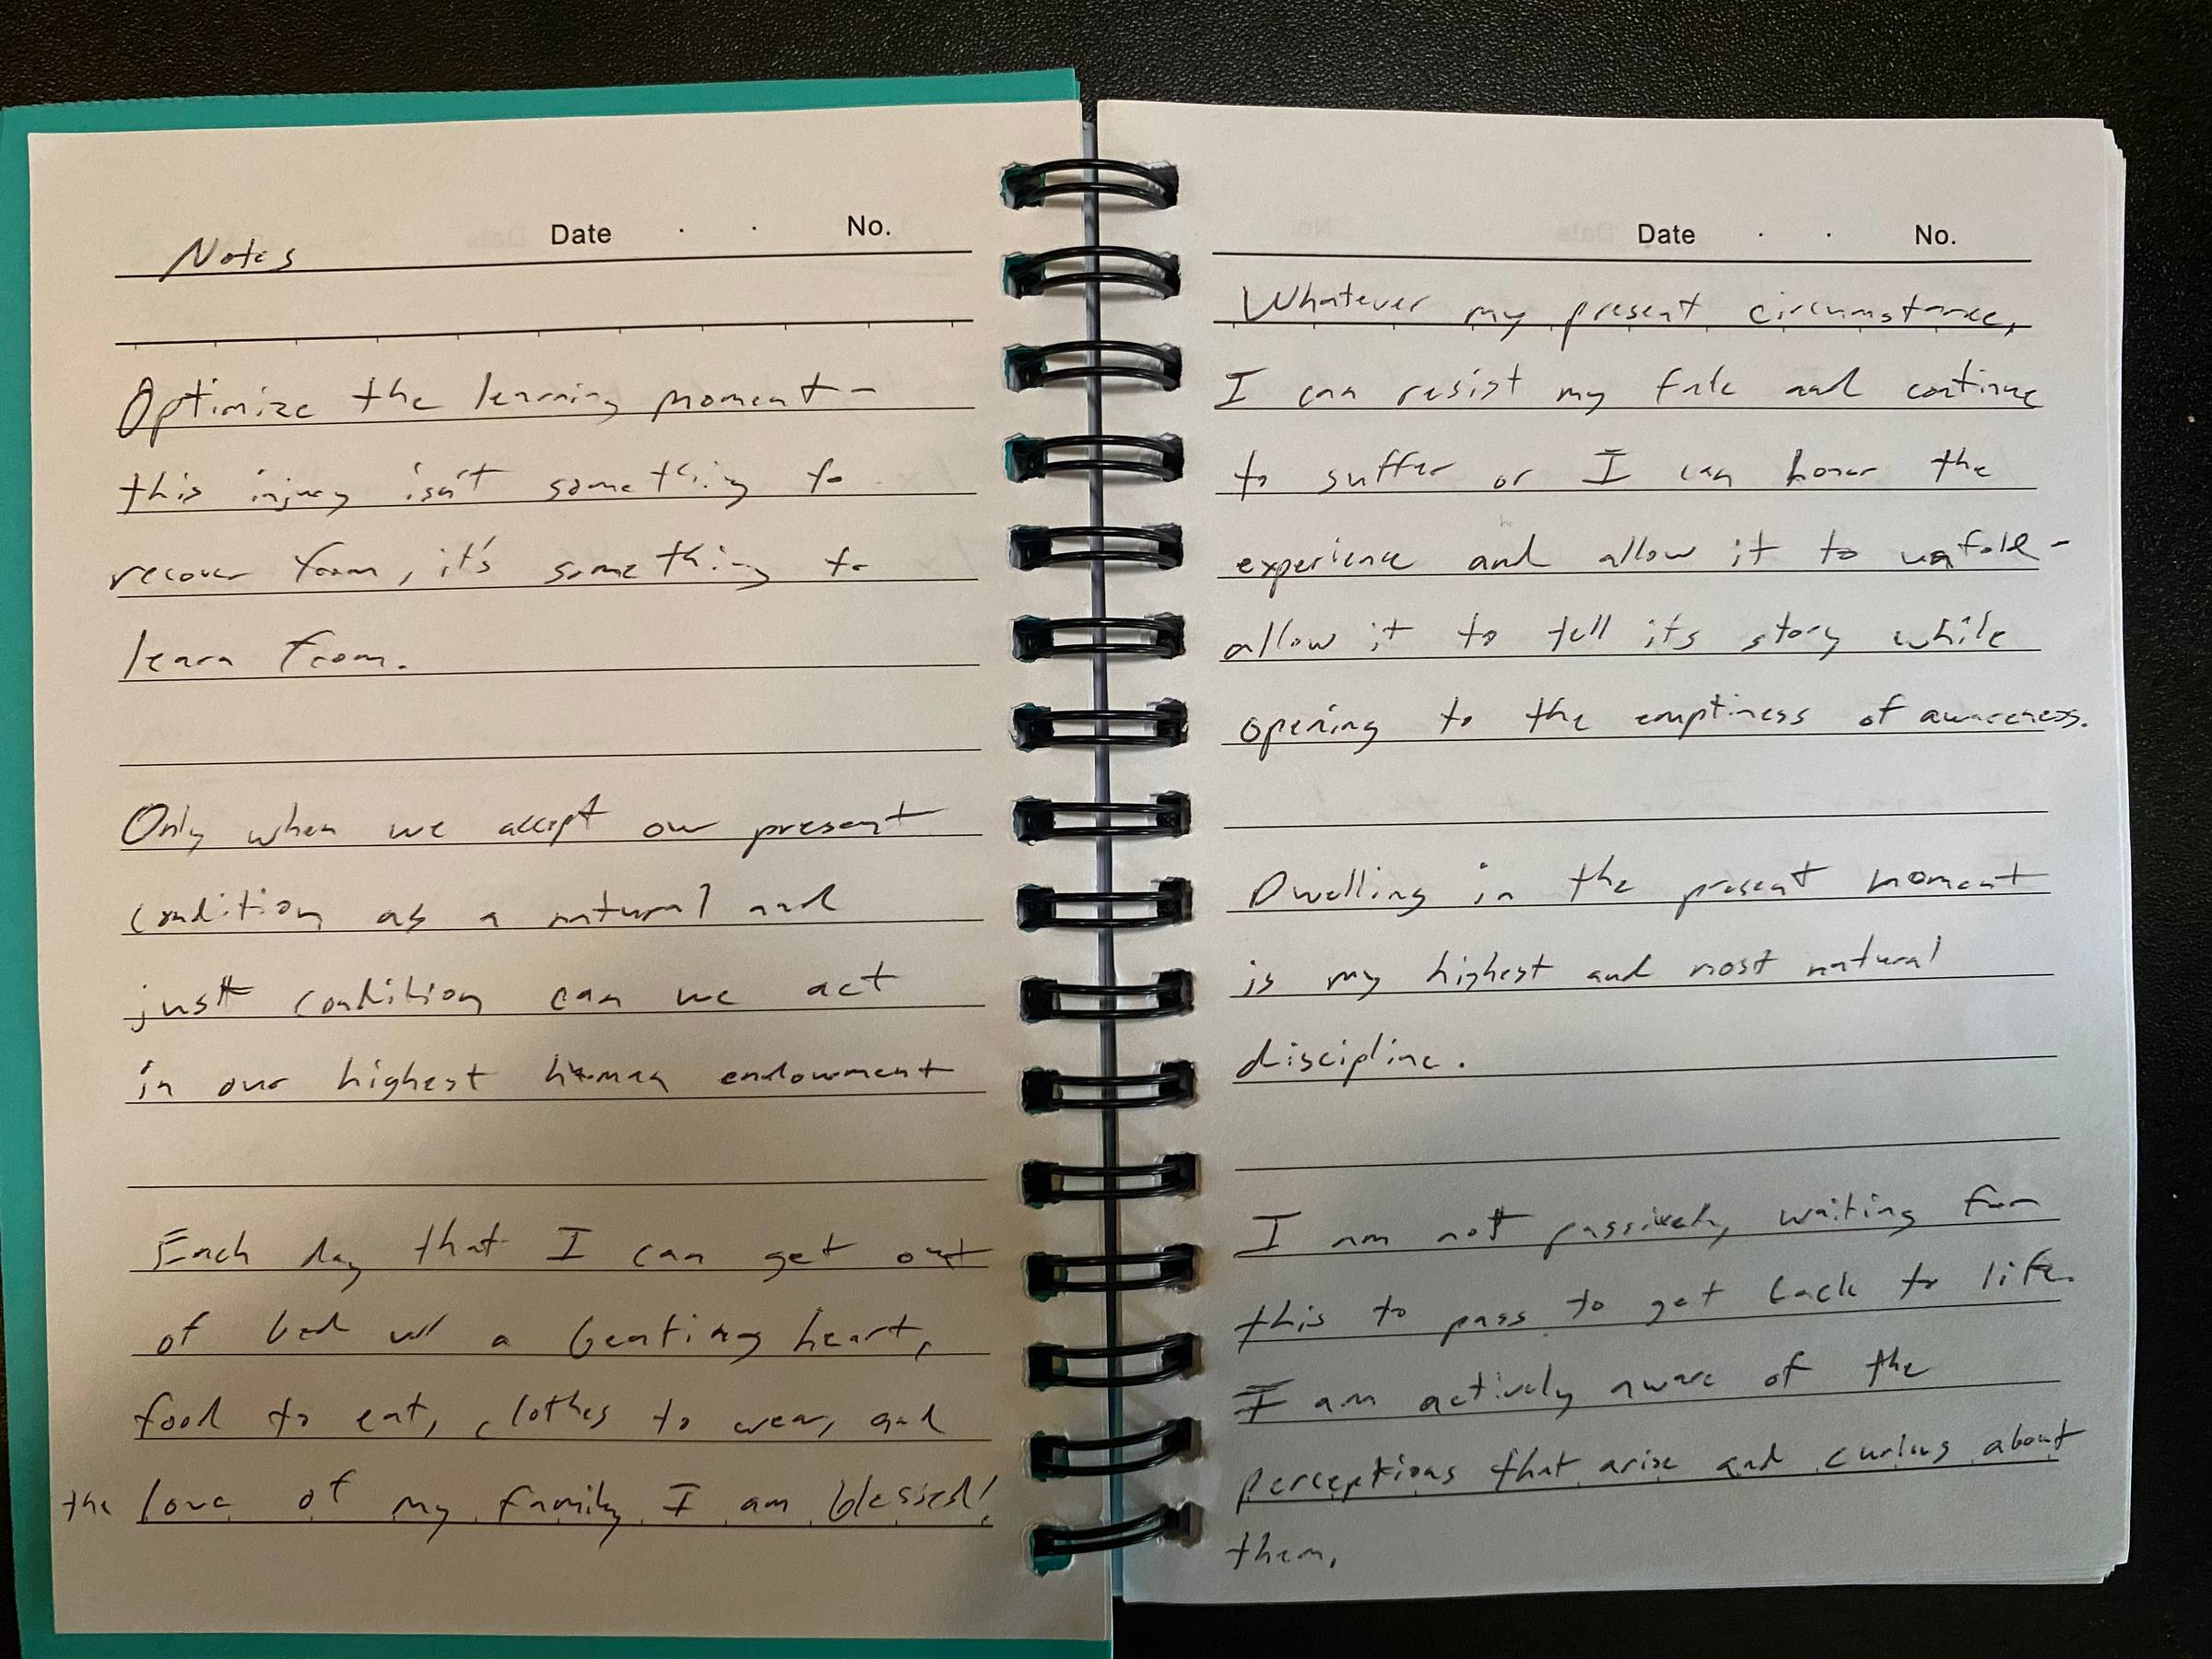 Notes
Date . . No.
Optimize the learning moment -
this injury isn't something to
recover from, it's something to
learn from.
Only when we accept our present
condition as a natural and
just condition can we act
in our highest human endowment
Each day that I can get out
of bed w/ a beating heart,
food to eat, clothes to wear, and
the love of my family I am blessed!
Date . . No.
Whatever my present circumstance,
I can resist my fate and continue
to suffer or I can honor the
experience and allow it to unfold -
allow it to tell its story while
opening to the emptiness of awareness.
Dwelling in the present moment
is my highest and most natural
discipline.
I am not passively waiting for
this to pass to get back to life.
I am actively aware of the
perceptions that arise and curious about
them.